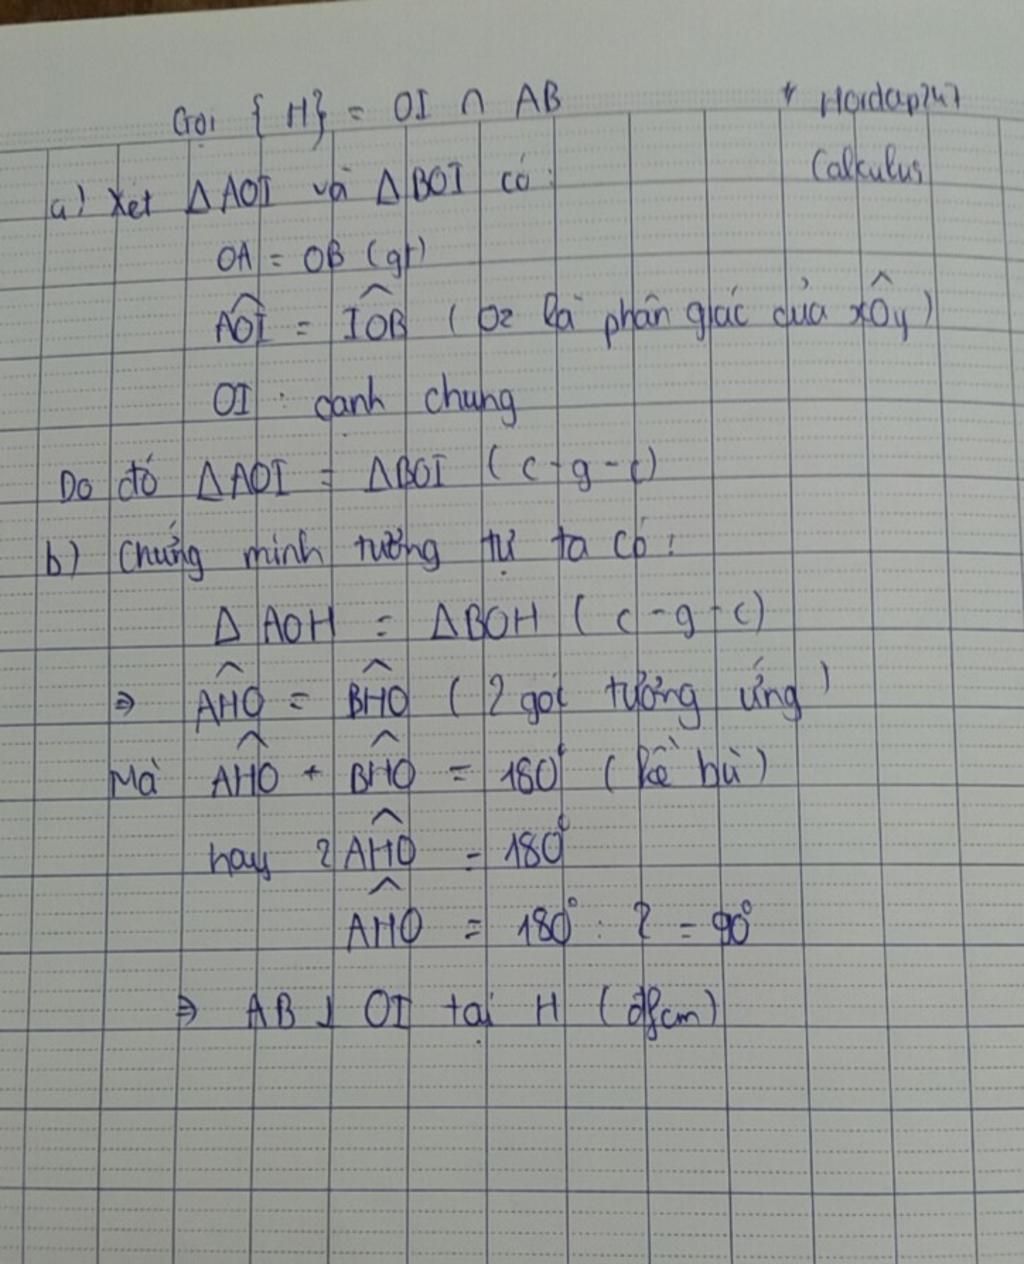 Gọi {H} = OI ∩ AB
* Hoidap247
Calculus
a) Xét ΔAOI và ΔBOI có:
OA = OB (gt)
AOI^ = IOB^ (Oz là phân giác của xÔy)
OI: cạnh chung
Do đó ΔAOI = ΔBOI (c-g-c)
b) Chứng minh tương tự ta có:
ΔAOH = ΔBOH (c-g-c)
⇒ AHO^ = BHO^ (2 góc tương ứng)
Mà AHO^ + BHO^ = 180° (kề bù)
hay 2AHO^ = 180°
AHO^ = 180° : 2 = 90°
⇒ AB ⊥ OI tại H (đpcm)